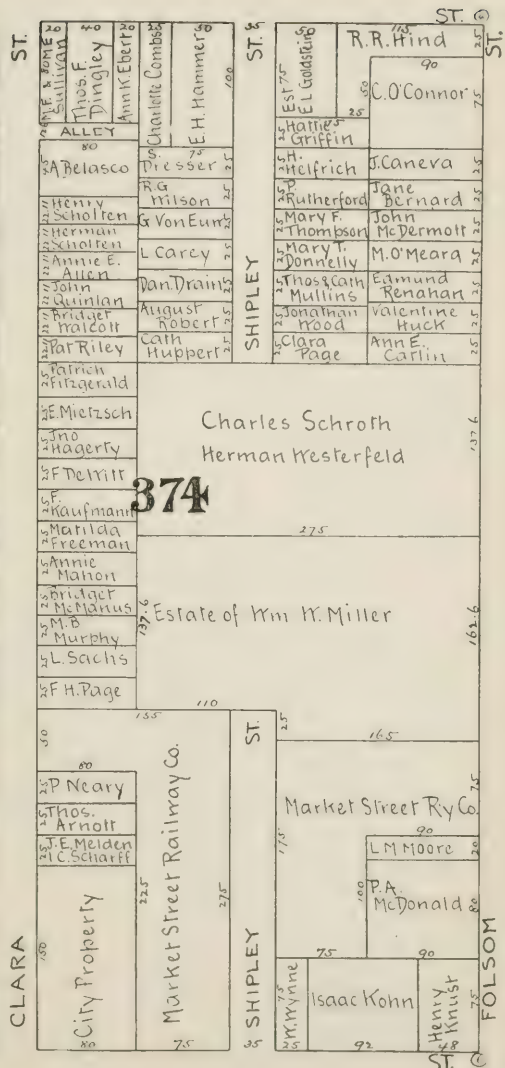 ST. 6
ST.
ST.
ST.
20
40
20
35
50
115
25
M. F. & JOME
Sullivan
Thos. F.
Dingley
Ann K. Ebert
Charlotte Combs
E. H. Hammer
100
75
Est
E L Goldstein
75
R. R. Hind
50
25
90
C. O'Connor
75
ALLEY
80
A Belasco
S.
Dresser
25
R. G
Wilson
25
G Von Eum
25
L Carey
25
Dan. Drains
25
August
Robert
25
Cath
Huppert
25
22 Henry
Scholten
22 Herman
Scholten
22 Annie E.
Allen
22 John
Quinlan
22 Bridget
Walcott
22 Pat Riley
25 Patrick
Fitzgerald
25 E. Mietzsch
25 Jno
Hagerty
25 F DeWitt
25 F.
Kaufmann
25 Matilda
Freeman
25 Annie
Mahon
25 Bridget
McManus
25 M. B
Murphy
25 L. Sachs
25 F H. Page
SHIPLEY
25 Hattie
Griffin
25 H.
Helfrich
25 P.
Rutherford
25 Mary F.
Thompson
25 Mary T.
Donnelly
25 Thos & Cath
Mullins
25 Jonathan
Wood
25 Clara
Page
J. Caneva
25
Jane
Bernard
25
John
McDermott
25
M. O'Meara
25
Edmund
Renahan
25
Valentine
Huck
25
Ann E.
Carlin
25
Charles Schroth
Herman Westerfeld
137.6
374
275
Estate of Wm W. Miller
137.6
162.6
110
155
25
165
50
80
25 P Neary
25 Thos.
Arnott
25 J. E. Melden
I C. Scharff
150
City Property
80
225
Market Street Railway Co.
275
75
ST.
SHIPLEY
35
175
Market Street Ry Co.
75
90
L M Moore
20
100
P. A.
McDonald
80
75
90
W. Wynne
75
25
Isaac Kohn
92
Henry
Knust
75
48
CLARA
FOLSOM
ST.